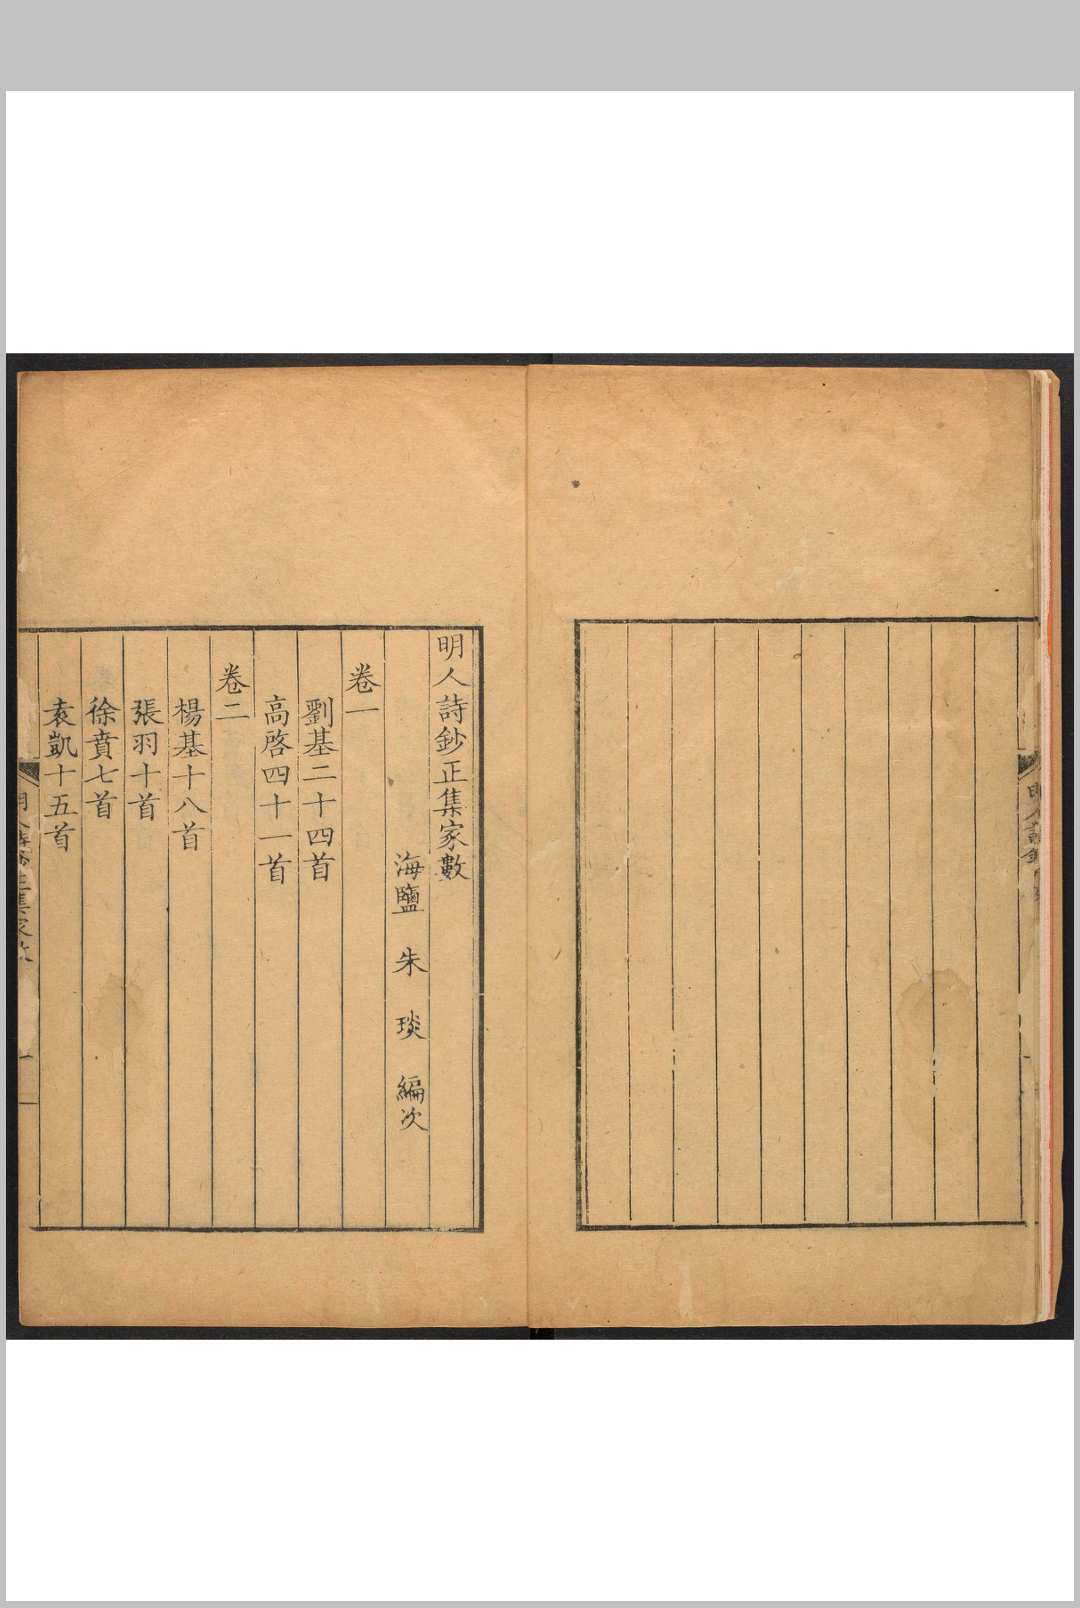 明人詩鈔
明人詩鈔正集家數
海鹽 朱 琰 編次
卷一
劉基二十四首
高啓四十一首
卷二
楊基十八首
張羽十首
徐賁七首
袁凱十五首
明人詩鈔正集家數
一